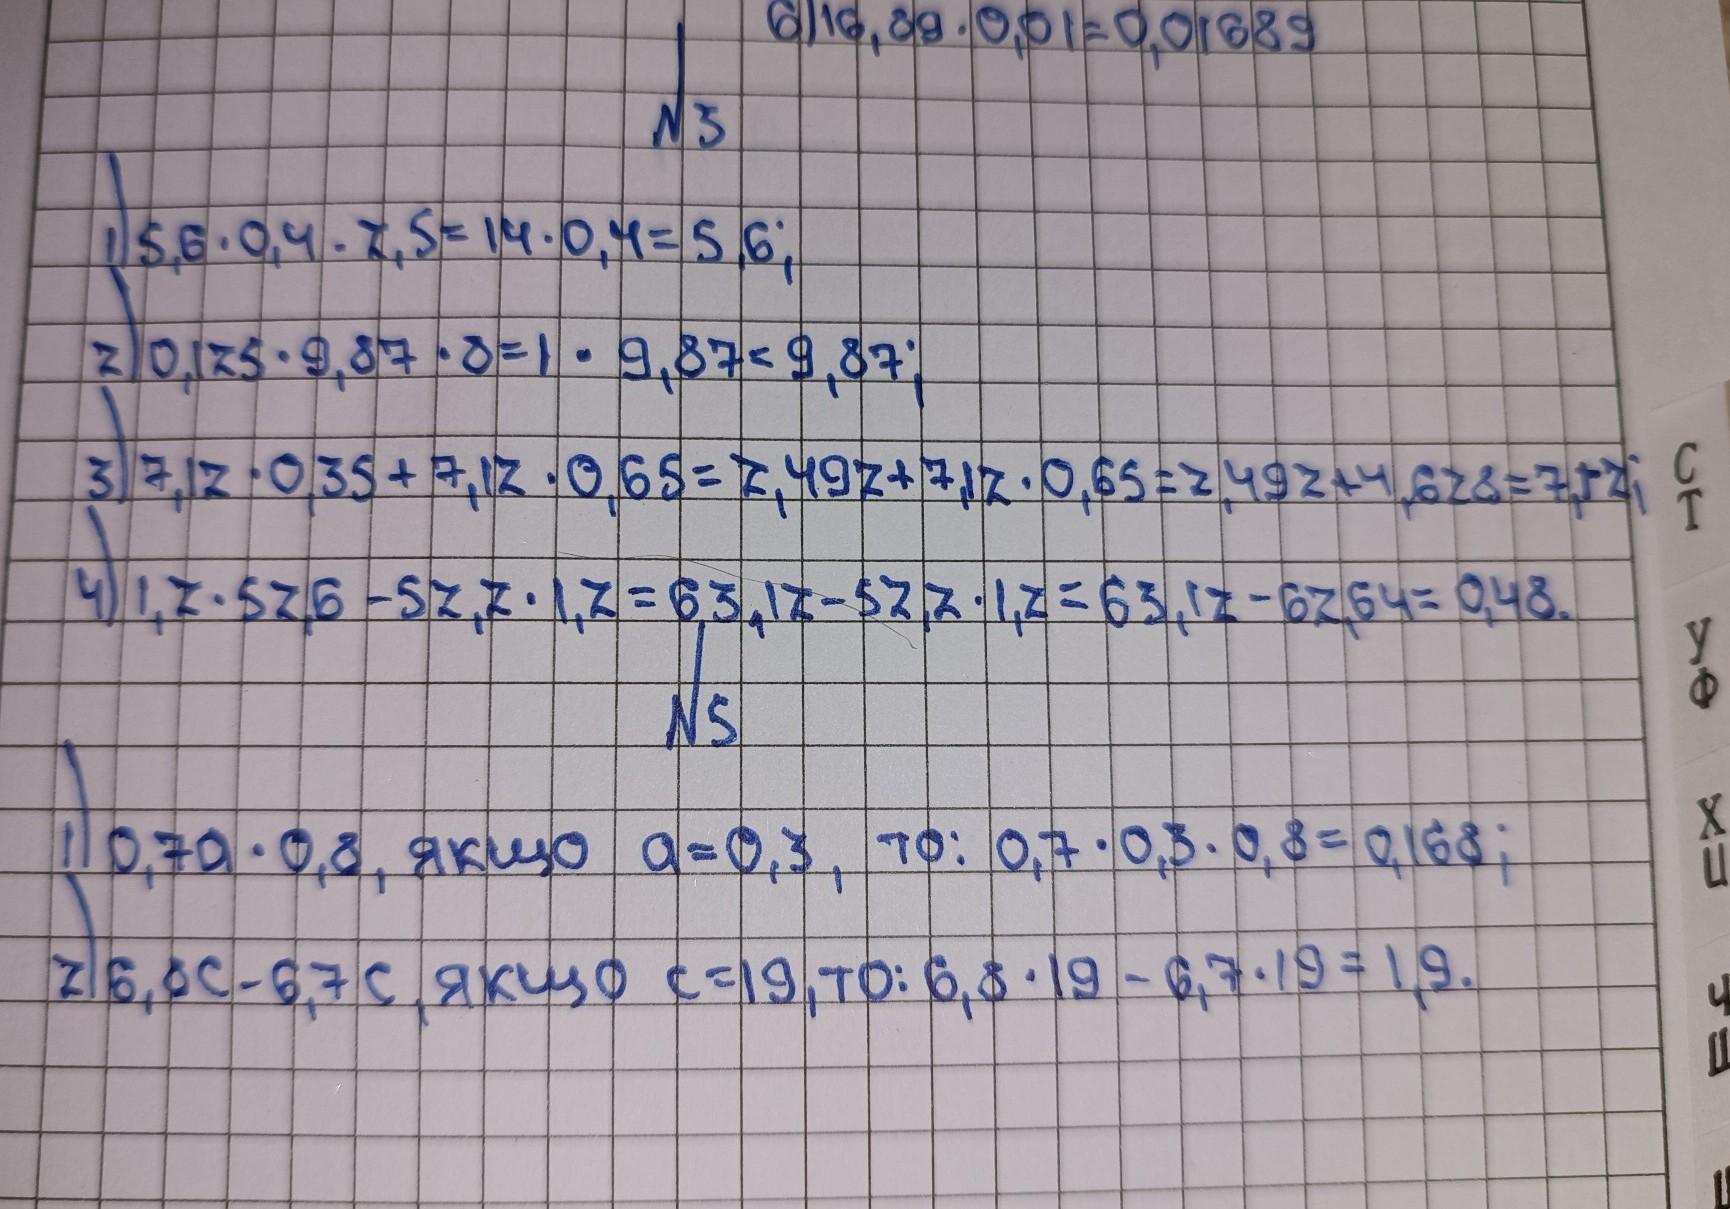 6) 16,89 · 0,01 = 0,01689
N3
1) 5,6 · 0,4 · 2,5 = 14 · 0,4 = 5,6;
2) 0,125 · 9,87 · 8 = 1 · 9,87 = 9,87;
3) 7,12 · 0,35 + 7,12 · 0,65 = 2,492 + 7,12 · 0,65 = 2,492 + 4,628 = 7,12;
4) 1,2 · 52,6 - 52,2 · 1,2 = 63,12 - 52,2 · 1,2 = 63,12 - 62,64 = 0,48.
N5
1) 0,7a · 0,8, якщо a = 0,3, то: 0,7 · 0,3 · 0,8 = 0,168;
2) 6,8c - 6,7c, якщо c = 19, то: 6,8 · 19 - 6,7 · 19 = 1,9.
С
Т
У
Ф
Х
Ц
Ч